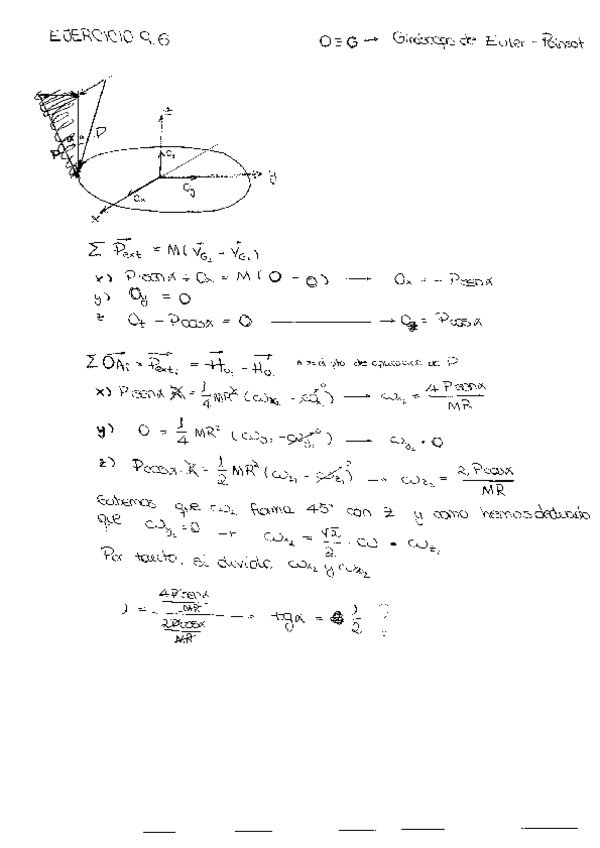 EJERCICIO 9.6
O≡G → Giróscopo de Euler - Poinsot
P
α
z
O_z
O_y
y
O_x
x
Σ P_ext = M(V_G2 - V_G1)
x) P senα + O_x = M(0 - 0) → O_x = - P senα
y) O_y = 0
z O_z - P cosα = 0 → O_z = P cosα
Σ OA_i × P_ext i = H_02 - H_01 A = de de P
x) P senα R = 1/4 MR² (ω_x2 - ω_x1⁰) → ω_x2 = 4 P senα / MR
y) 0 = 1/4 MR² (ω_y2 - ω_y1⁰) → ω_y2 = 0
z) P cosα · R = 1/2 MR² (ω_z2 - ω_z1⁰) → ω_z2 = 2 P cosα / MR
Sabemos que ω_2 forma 45° con z y como hemos deducido
que ω_y2 = 0 → ω_x2 = √2/2 · ω = ω_z2
Por tanto, si divido ω_x2 y ω_z2
1 = (4 P senα / MR) / (2 P cosα / MR) → tgα = 1/2 ?